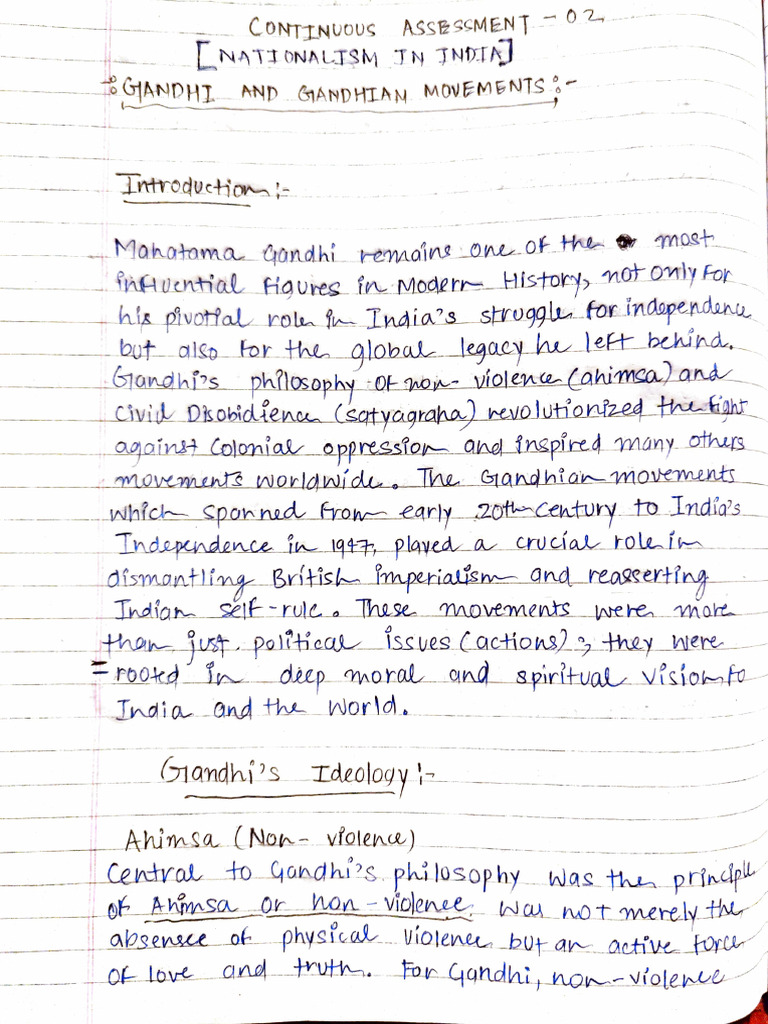 CONTINUOUS ASSESSMENT - 02
[NATIONALISM IN INDIA]
:GANDHI AND GANDHIAN MOVEMENTS:-
Introduction:-
Mahatama Gandhi remains one of the most
influential figures in Modern History, not only for
his pivotial role in India's struggle for independence
but also for the global legacy he left behind.
Gandhi's philosophy of non-violence (ahimsa) and
Civid Disobidience (satyagraha) revolutionized the fight
against Colonial oppression and inspired many others
movements worldwide. The Gandhian movements
which sponned from early 20th Century to India's
Independence in 1947, played a crucial role in
dismantling British imperialism and reasserting
Indian self-rule. These movements were more
than just political issues (actions); they were
=rooted in deep moral and spiritual vision to
India and the World.
Gandhi's Ideology:-
Ahimsa (Non-violence)
Central to Gandhi's philosophy was the principle
of Ahimsa or non-violence. Was not merely the
absensce of physical violence but an active force
of love and truth. For Gandhi, non-violence